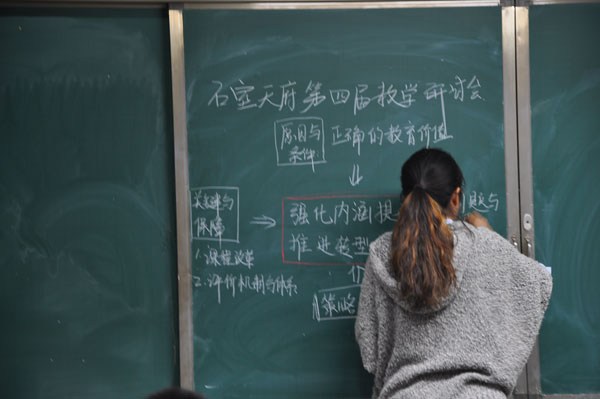 石室天府第四届教学研讨会
原因与
条件
正确的教育价值
关键与
保障
强化内涵提
推进转型
题与
1.课程改革
2.评价机制与体系
策略